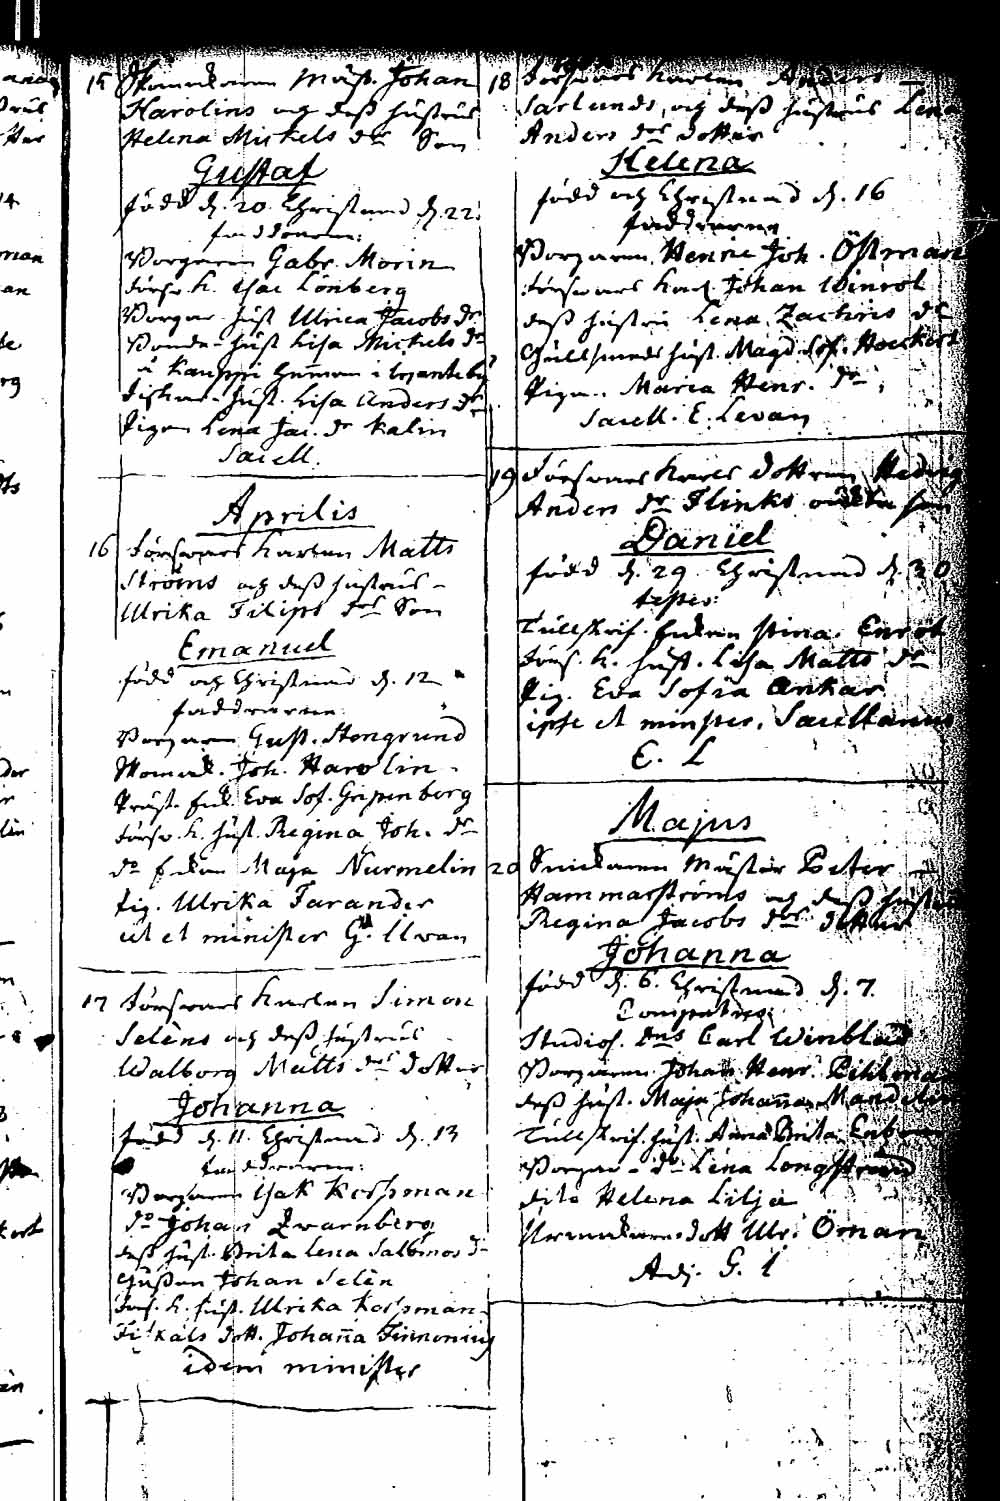 15 Skomakaren Mäst. Johan
Karolins och dess hustrus
Helena Mickels dr Son
Gustaf
född d. 20. Christnad d. 22.
faddrarne:
Borgaren Gabr. Morin
Försv. k. Isac Lönberg
Borgar hust Ulrica Jacobs dr
Bonde hust Lisa Mickels dr
Fiskar hust. Lisa Anders dr
Pigan Lena Jac. dr Kalin
Sacell.
Aprilis
16 Försvars karlen Matts
Ströms och dess hustrus
Ulrika Filips drs Son
Emanuel
född och Christnad d. 12
faddrarne:
Borgaren Gust. Stengrund
Skomak. Joh. Karolin
Präst. frk Eva Sof. Gripenberg
Försv. k. hust. Regina Joh. dr
do Maja Nurmelin
Pig. Ulrika Farander
ut et minister G.
17 Försvars karlen Simon
Seléns och dess hustrus
Walborg Matts drs dotter
Johanna
född d. 11. Christnad d. 13
faddrarne:
Borgaren Isak Korsman
do Johan Qvarnberg
dess hust. Brita Lena Salomos dr
Johan Selén
Förs. k. hust. Ulrika Korsman
Fiskals dott. Johanna Finnenius
idem minister
18 Försvars karlen Anders
Sarlunds, och dess hustrus Lena
Anders drs dotter
Helena
född och Christnad d. 16
faddrarne
Borgaren Henric Joh. Östman
Försvars karl. Johan Winrot
dess hustru Lena Zachris dr
Gullsmeds hust. Magd. Sof. Hoeckert
Pigan Maria Henr. dr
Sacell. E. Levan
19 Försvars karls dottren Hedvig
Anders dr Flinks oächta son
Daniel
född d. 29 Christnad d. 30
testes:
Tullskrif. Stina Enrot
Förs. k. hust. Lisa Matts dr
Pig. Eva Sofia Ankar
ipse et minster. Sacellanus
E. L
Majus
20 Snickaren Mäster Peter
Hammarströms och dess hustrus
Regina Jacobs drs dotter
Johanna
född d. 6. Christnad d. 7.
Compatres:
Studios. Dns Carl Winblad
Borgaren Johan Henr. Pihlman
dess hust. Maja Johanna Mandelin
Tullskrif. hust. Anna Brita
Borgar do Lena Longstrand
dito Helena Lilja
dott Ulr. Öman
Adj. G. L